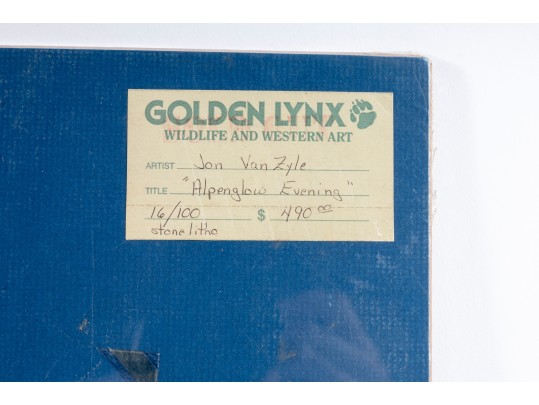 GOLDEN LYNX
WILDLIFE AND WESTERN ART
ARTIST Jon Van Zyle
TITLE "Alpenglow Evening"
16/100 $ 490.00
stone litho